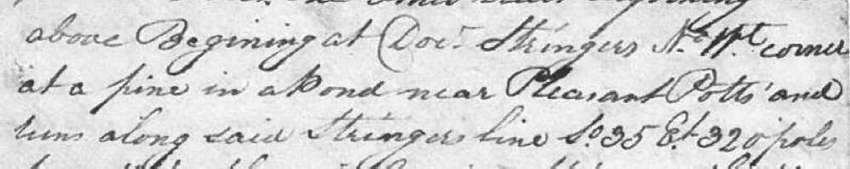 above Begining at Doct. Stringers No. Wt. corner
at a pine in a Pond near Pleasant Potts' and
runs along said Stringers line So. 35 Et. 320 poles